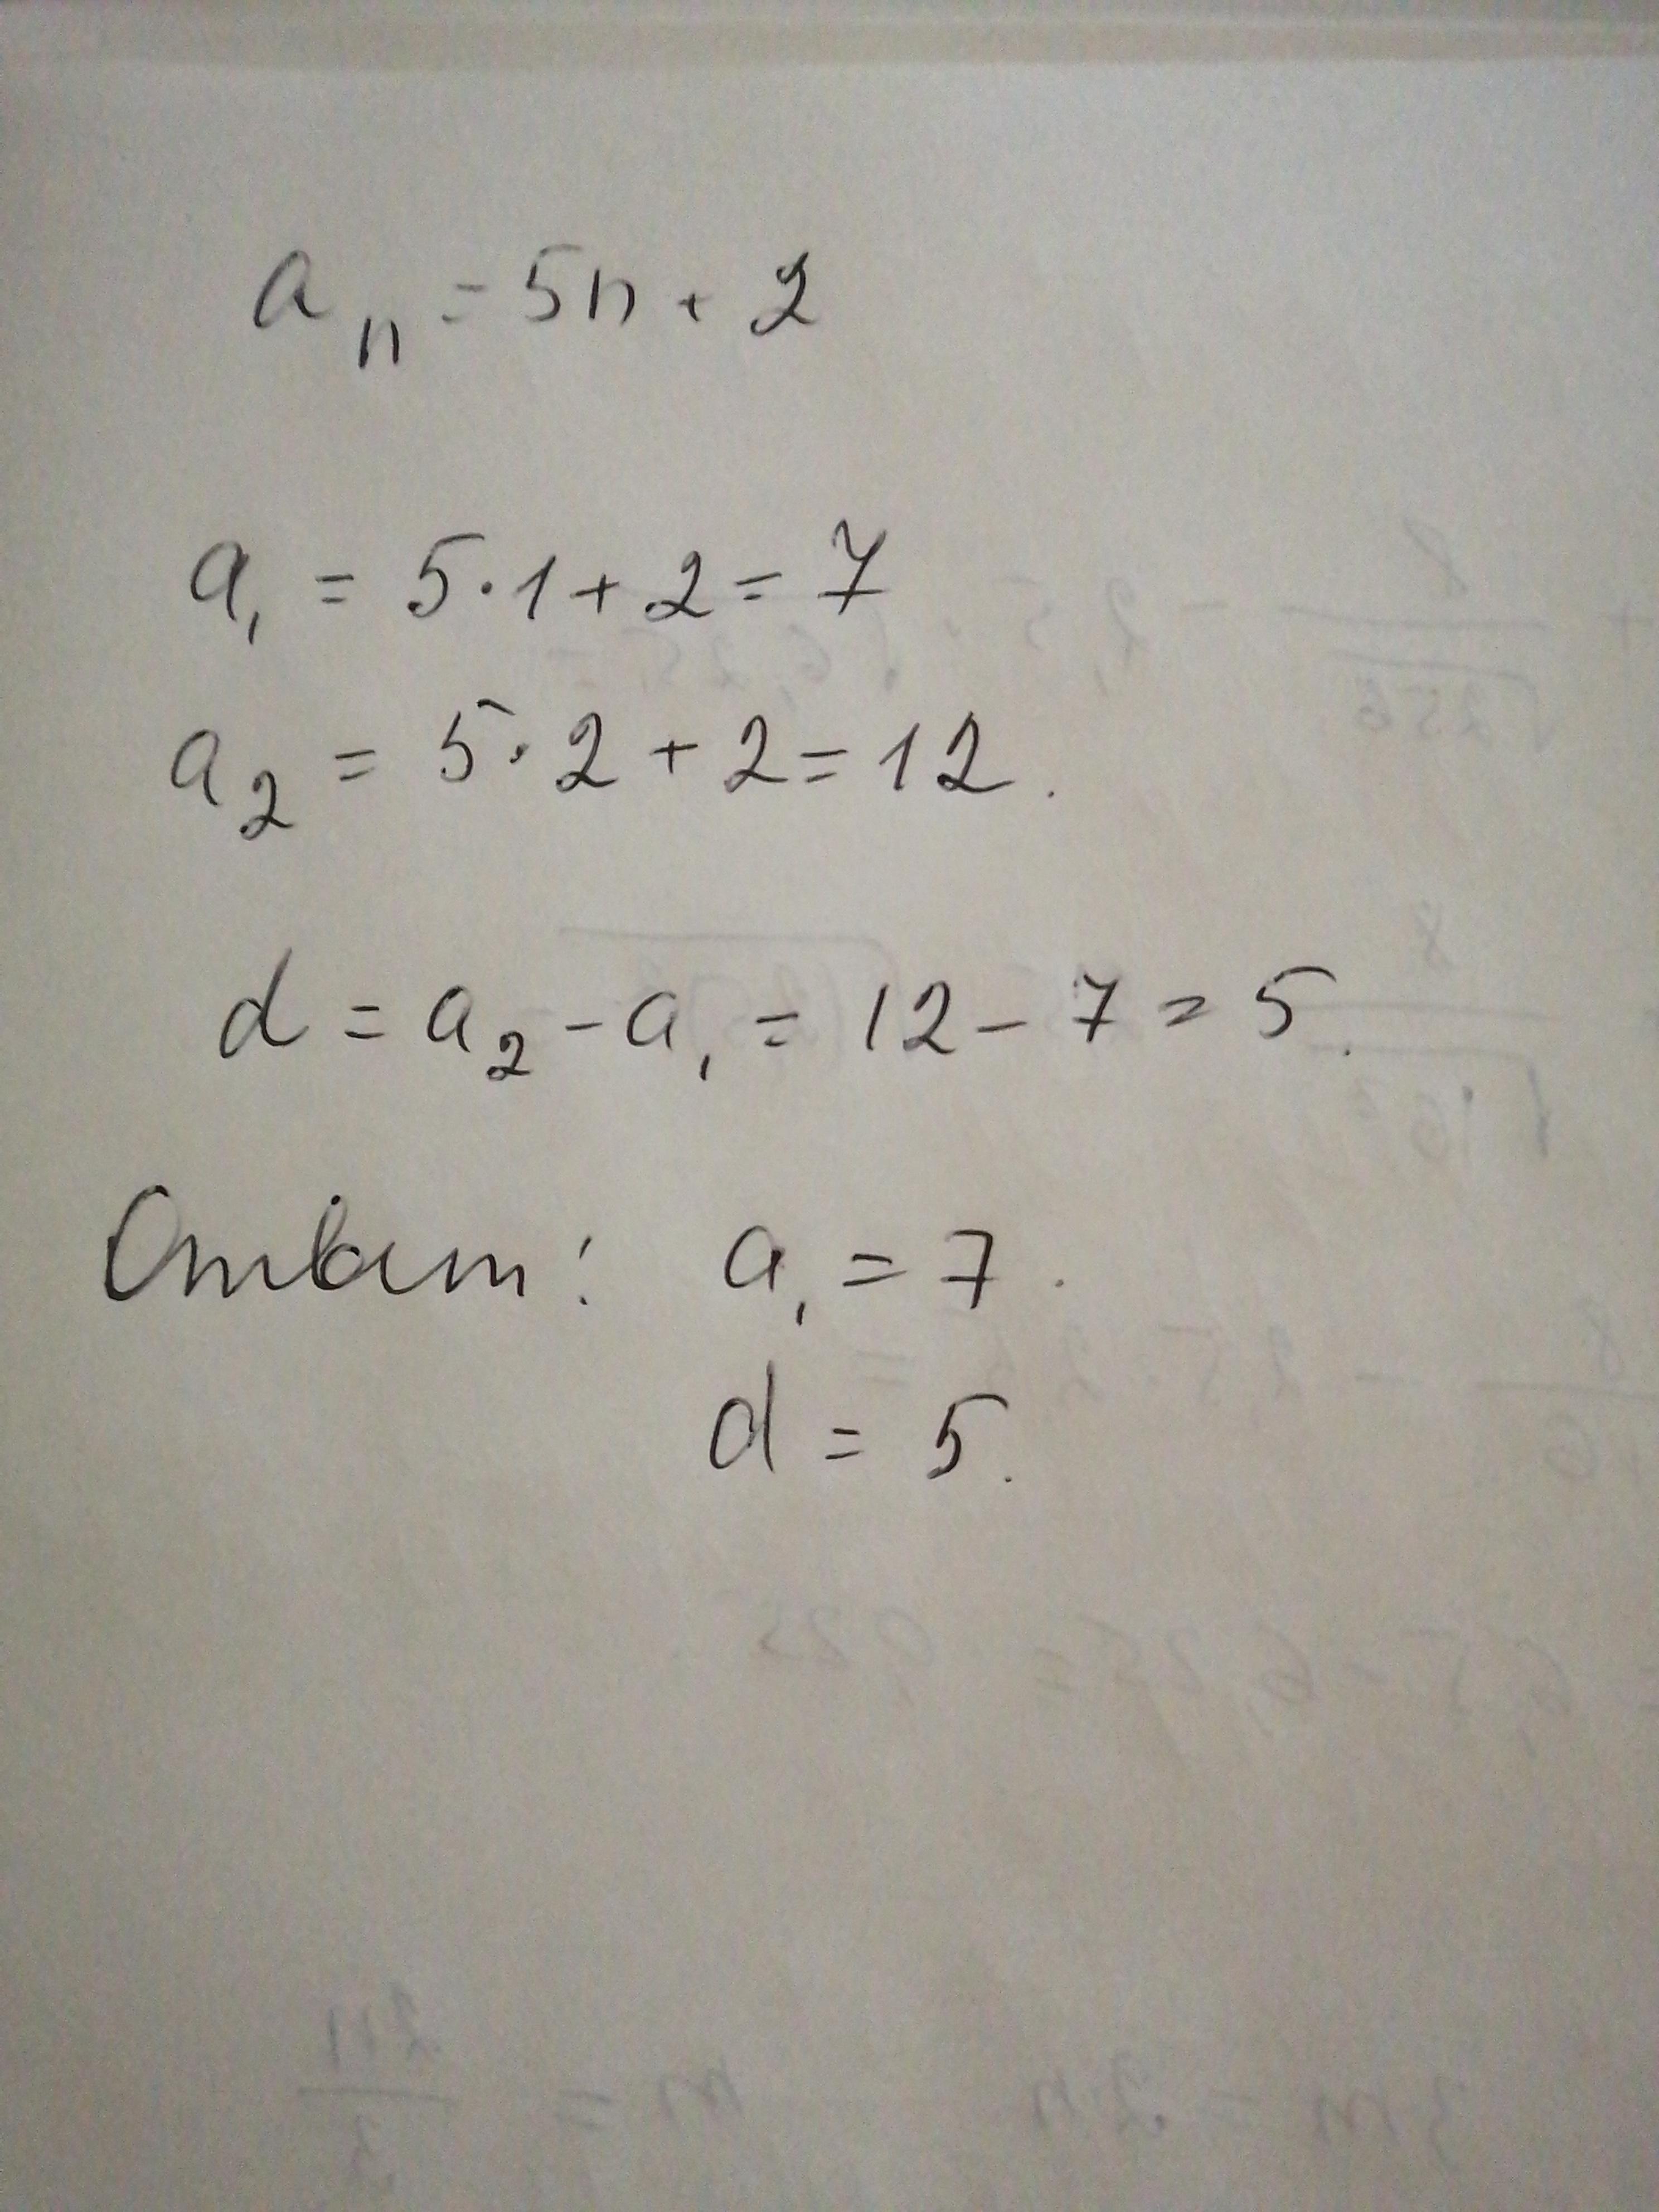 aₙ = 5n + 2
a₁ = 5·1 + 2 = 7
a₂ = 5·2 + 2 = 12.
d = a₂ - a₁ = 12 - 7 = 5.
Ответ: a₁ = 7.
d = 5.